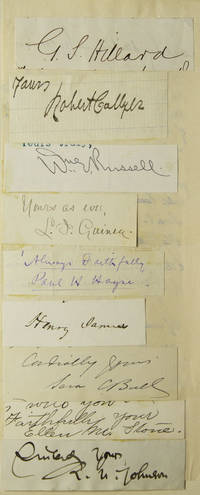 G. S. Hillard
Yours
Robert Collyer
Yours truly,
Wm. Russell.
Yours as ever,
L. I. Guiney.
Always Faithfully
Paul H. Hayne.
Henry James
Cordially yours
Sara C Bull
who you
Faithfully your
Ellen M. Stone.
Sincerely Yours
R. U. Johnson